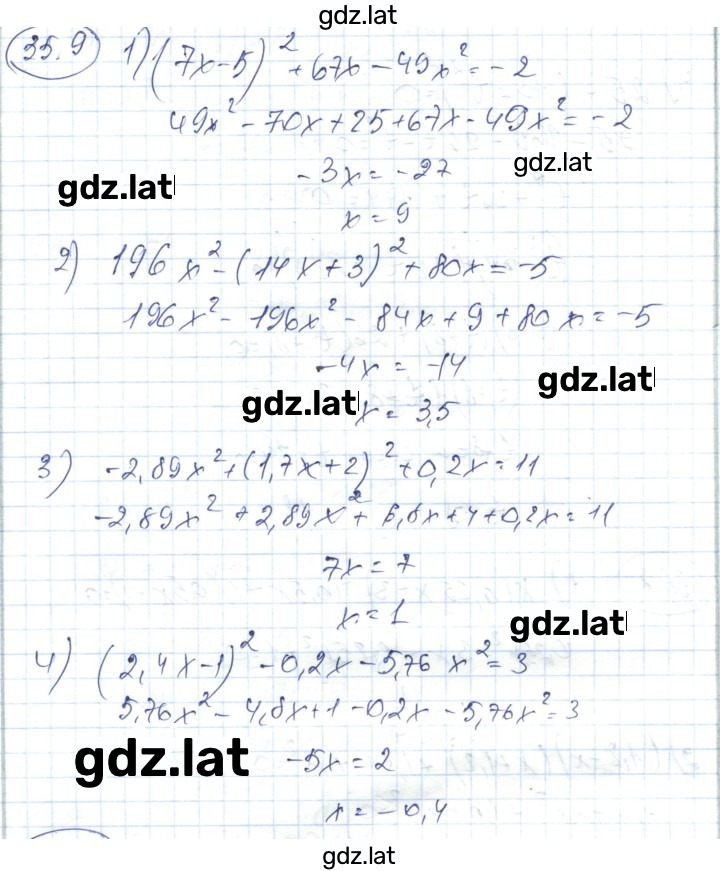 gdz.lat
35.9 1) (7x-5)² + 67x - 49x² = -2
49x² - 70x + 25 + 67x - 49x² = -2
gdz.lat
-3x = -27
gdz.lat
x = 9
2) 196x² - (14x+3)² + 80x = -5
196x² - 196x² - 84x + 9 + 80x = -5
-4x = -14
gdz.lat
gdz.lat
x = 3,5
3) -2,89x² + (1,7x+2)² + 0,2x = 11
-2,89x² + 2,89x² + 6,8x + 4 + 0,2x = 11
7x = 7
x = 1
gdz.lat
4) (2,4x-1)² - 0,2x - 5,76x² = 3
5,76x² - 4,8x + 1 - 0,2x - 5,76x² = 3
gdz.lat
-5x = 2
x = -0,4
gdz.lat